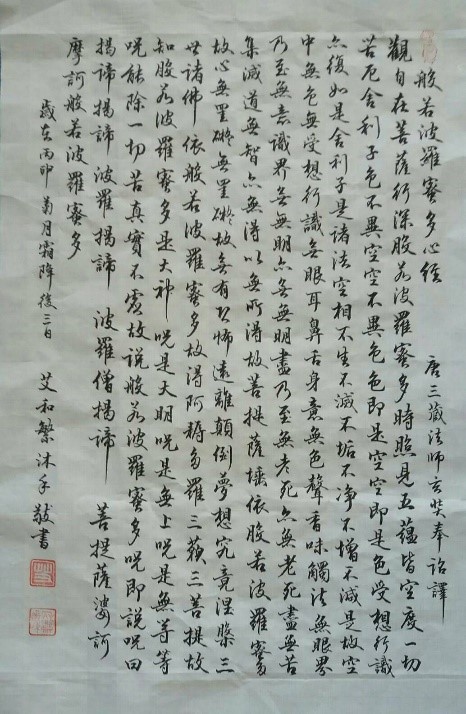 般若波羅蜜多心経 唐三藏法師玄奘奉詔譯
觀自在菩薩行深般若波羅蜜多時照見五蘊皆空度一切
苦厄舍利子色不異空空不異色色即是空空即是色受想行識
亦復如是舍利子是諸法空相不生不滅不垢不净不增不減是故空
中無色無受想行識無眼耳鼻舌身意無色聲香味觸法無眼界
乃至無意識界無無明亦無無明盡乃至無老死亦無老死盡無苦
集滅道無智亦無得以無所得故菩提薩埵依般若波羅蜜多
故心無罣礙無罣礙故無有恐怖遠離顛倒夢想究竟涅槃三
世諸佛依般若波羅蜜多故得阿耨多羅三藐三菩提故
知般若波羅蜜多是大神咒是大明咒是無上咒是無等等
咒能除一切苦真實不虛故說般若波羅蜜多咒即說咒曰
揭諦揭諦波羅揭諦 波羅僧揭諦 菩提薩婆訶
摩訶般若波羅蜜多
歲在丙申菊月霜降後三日 艾和繁沐手敬書